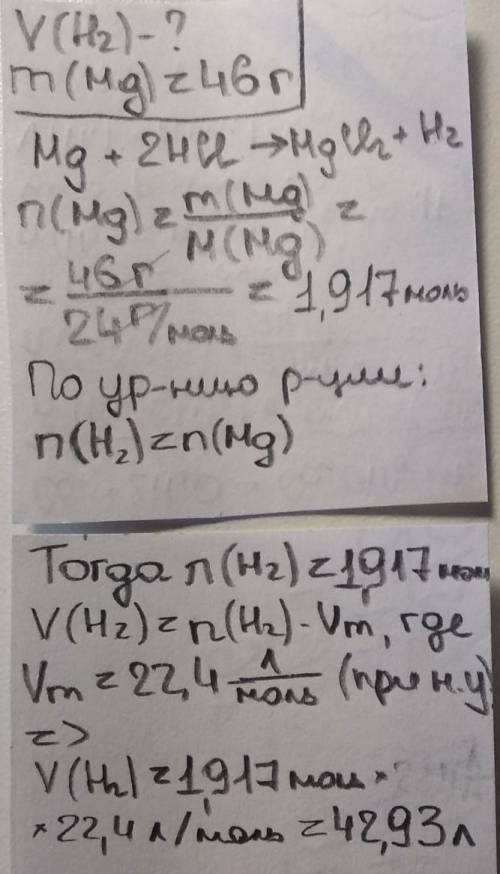 V(H₂)-?
m(Mg)=46г
Mg + 2HCl → MgCl₂ + H₂
n(Mg) = m(Mg)/M(Mg) =
= 46г/24г/моль = 1,917 моль
По ур-нию р-ции:
n(H₂)=n(Mg)
Тогда n(H₂)=1,917 мол
V(H₂)=n(H₂)·Vm, где
Vm = 22,4 л/моль (при н.у)
=>
V(H₂)=1,917 мол ×
×22,4 л/моль = 42,93 л